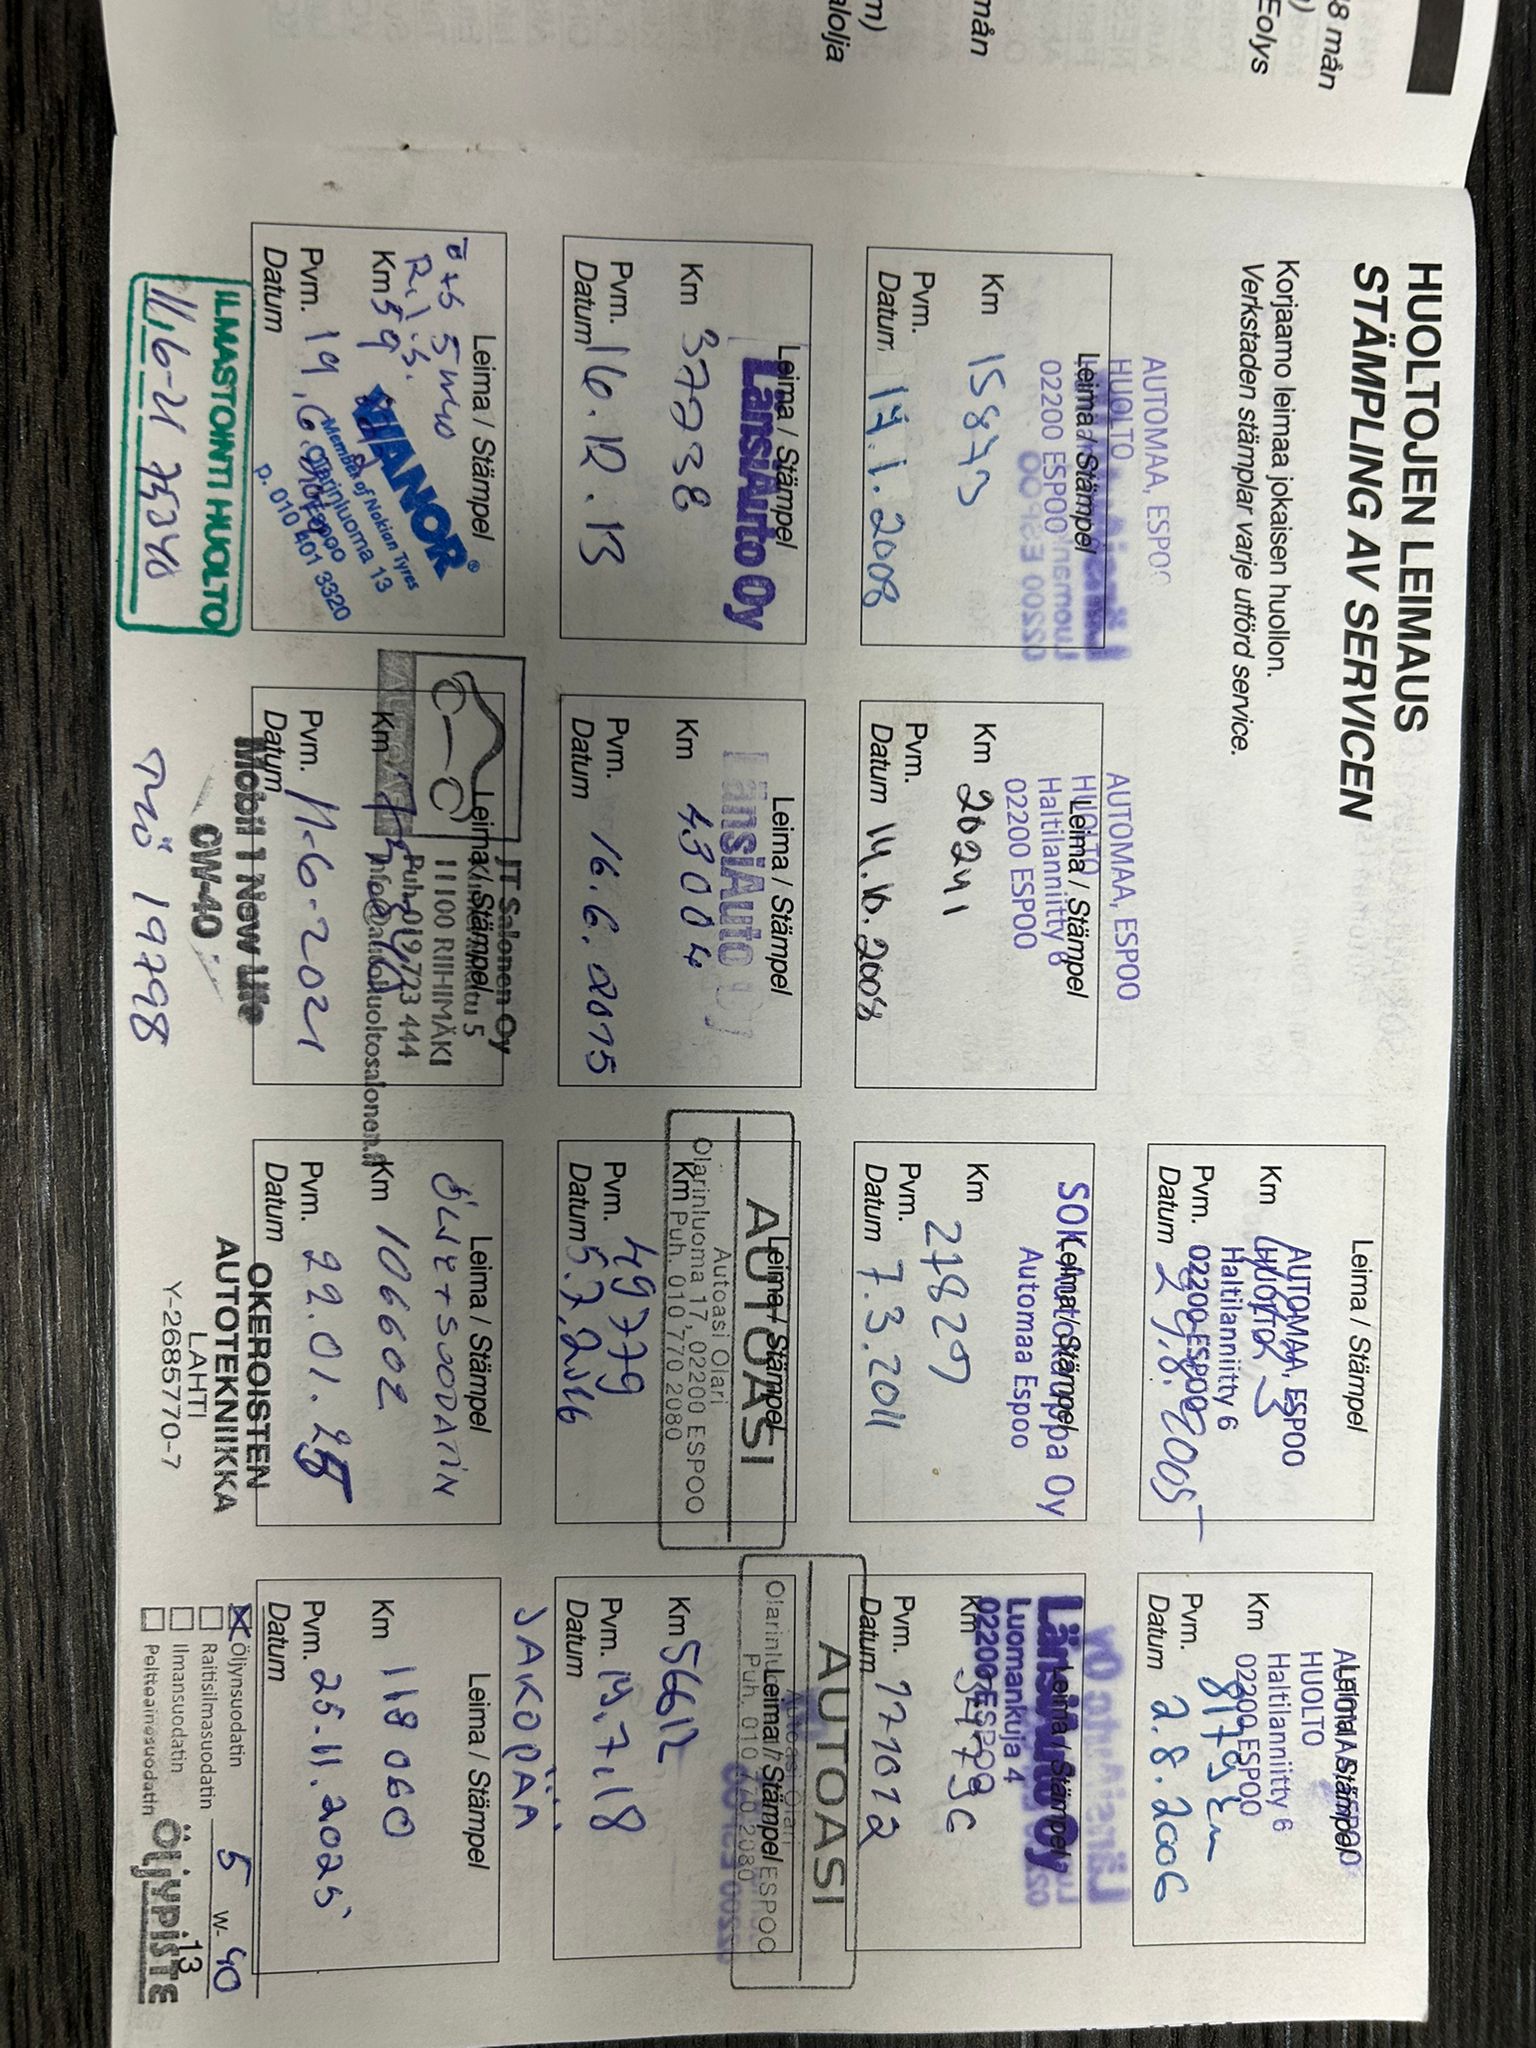 8 mån
Eolys
mån
alolja
HUOLTOJEN LEIMAUS
STÄMPLING AV SERVICEN
Korjaamo leimaa jokaisen huollon.
Verkstaden stämplar varje utförd service.
Leima / Stämpel
AUTOMAA, ESPOO
HUOLTO
Haltilanniitty 6
02200 ESPOO
Km
Pvm.
Datum 29.8.2005
Leima / Stämpel
HUOLTO
Haltilanniitty 6
02200 ESPOO
Km 8179 km
Pvm.
Datum 2.8.2006
AUTOMAA, ESPOO
HUOLTO
Leima / Stämpel
02200 ESPOO
Km 15873
Pvm.
Datum 17.1.2008
AUTOMAA, ESPOO
HUOLTO
Leima / Stämpel
Haltilanniitty 6
02200 ESPOO
Km 20241
Pvm.
Datum 14.10.2008
SOK Autokauppa Oy
Leima / Stämpel
Automaa Espoo
Km 27827
Pvm.
Datum 7.3.2011
LänsiAuto Oy
Leima / Stämpel
Luomankuja 4
02200 ESPOO
Km
Pvm.
Datum 171012
Leima / Stämpel
LänsiAuto Oy
Km 37738
Pvm.
Datum 16.12.13
Leima / Stämpel
LänsiAuto Oy
Km 43004
Pvm.
Datum 16.6.2015
Leima / Stämpel
AUTOASI
Autoasi Olari
Olarinluoma 17, 02200 ESPOO
Km Puh. 010 770 2080
49779
Pvm.
Datum 5.7.2016
AUTOASI
Leima / Stämpel
ESPOO
Puh. 010 770 2080
Km 56612
Pvm. 19.7.18
Datum
JAKOPÄÄ
Leima / Stämpel
VIANOR
Member of Nokian Tyres
Olarinluoma 13
p. 010 401 3320
Km 59
Pvm. 19.6.
Datum
ILMASTOINTI HUOLTO
11,6-21 75340
JT Salonen Oy
Leima / Stämpel
11100 RIIHIMÄKI
Puh. 019 723 444
info@autohuoltosalonen.fi
Km
Pvm. 11-6-2021
Datum
Mobil 1 New Life
0W-40
TYÖ 19798
Leima / Stämpel
ÖLJY + SUODATIN
Km 106602
Pvm. 22.01.25
Datum
OKEROISTEN
AUTOTEKNIIKKA
LAHTI
Y-2685770-7
Leima / Stämpel
Km 118 060
Pvm. 25-11.2025
Datum
Öljynsuodatin
Raitisilmasuodatin
Ilmansuodatin
Polttoainesuodatin
5 W- 40
ÖljypisTE
13